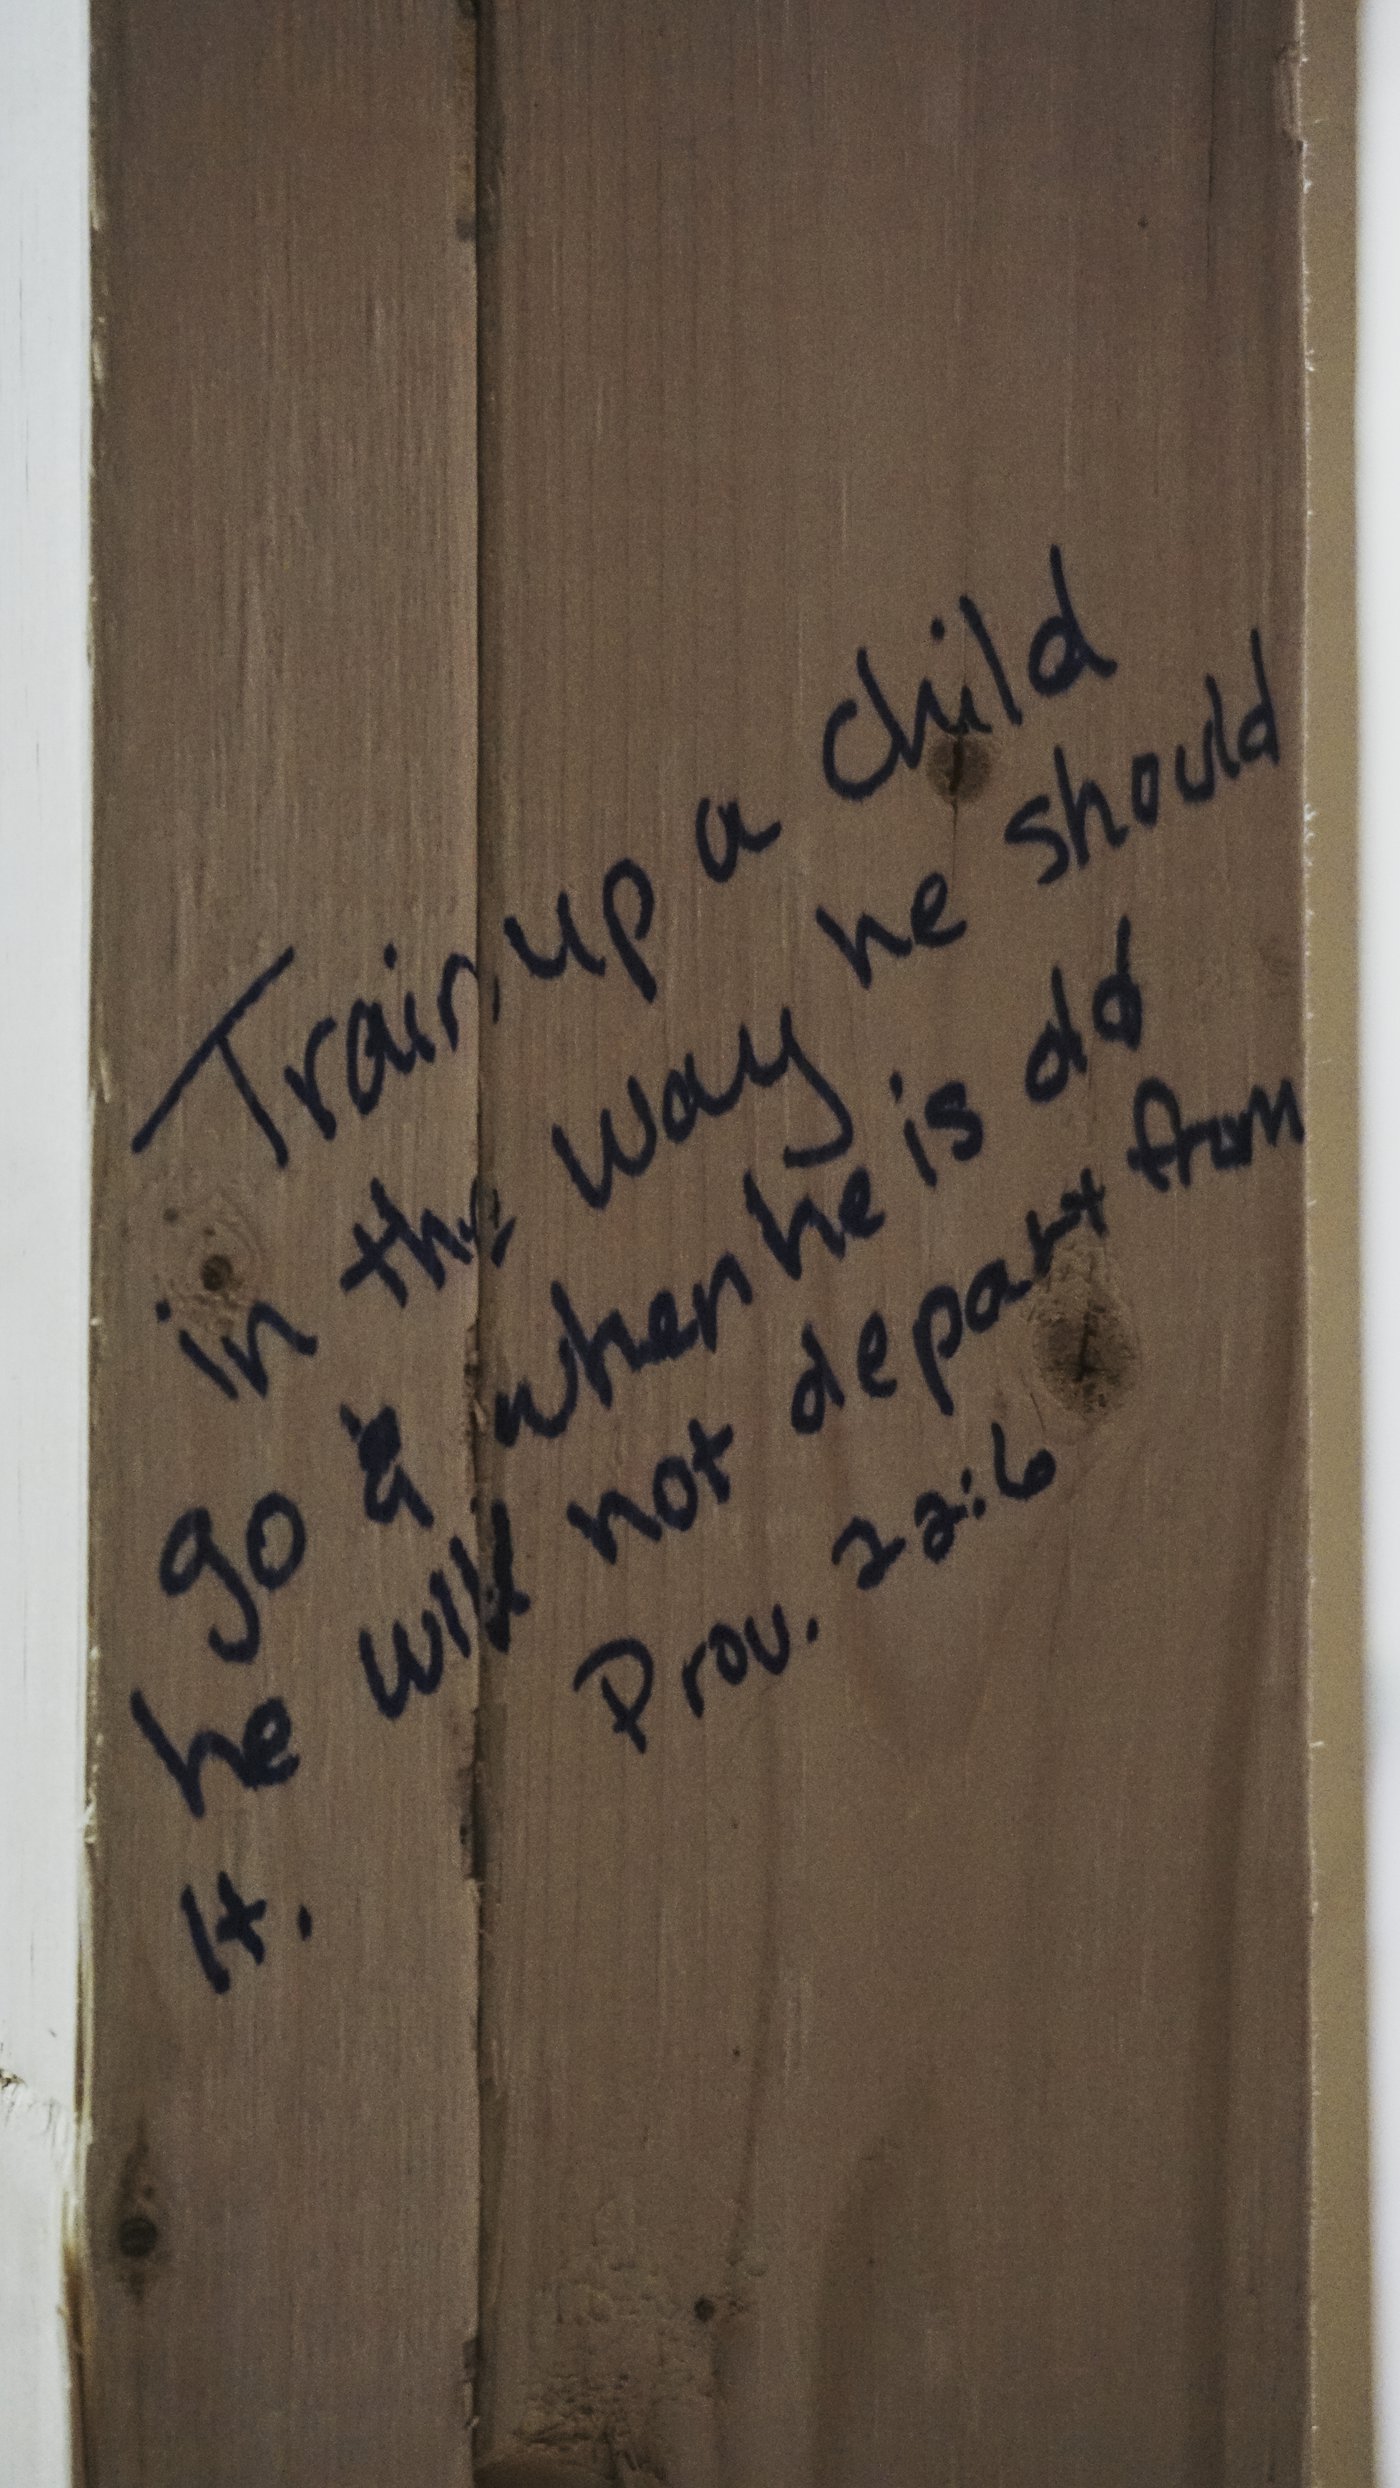 Train up a child
in the way he should
go & when he is old
he will not depart from
it.
Prov. 22:6